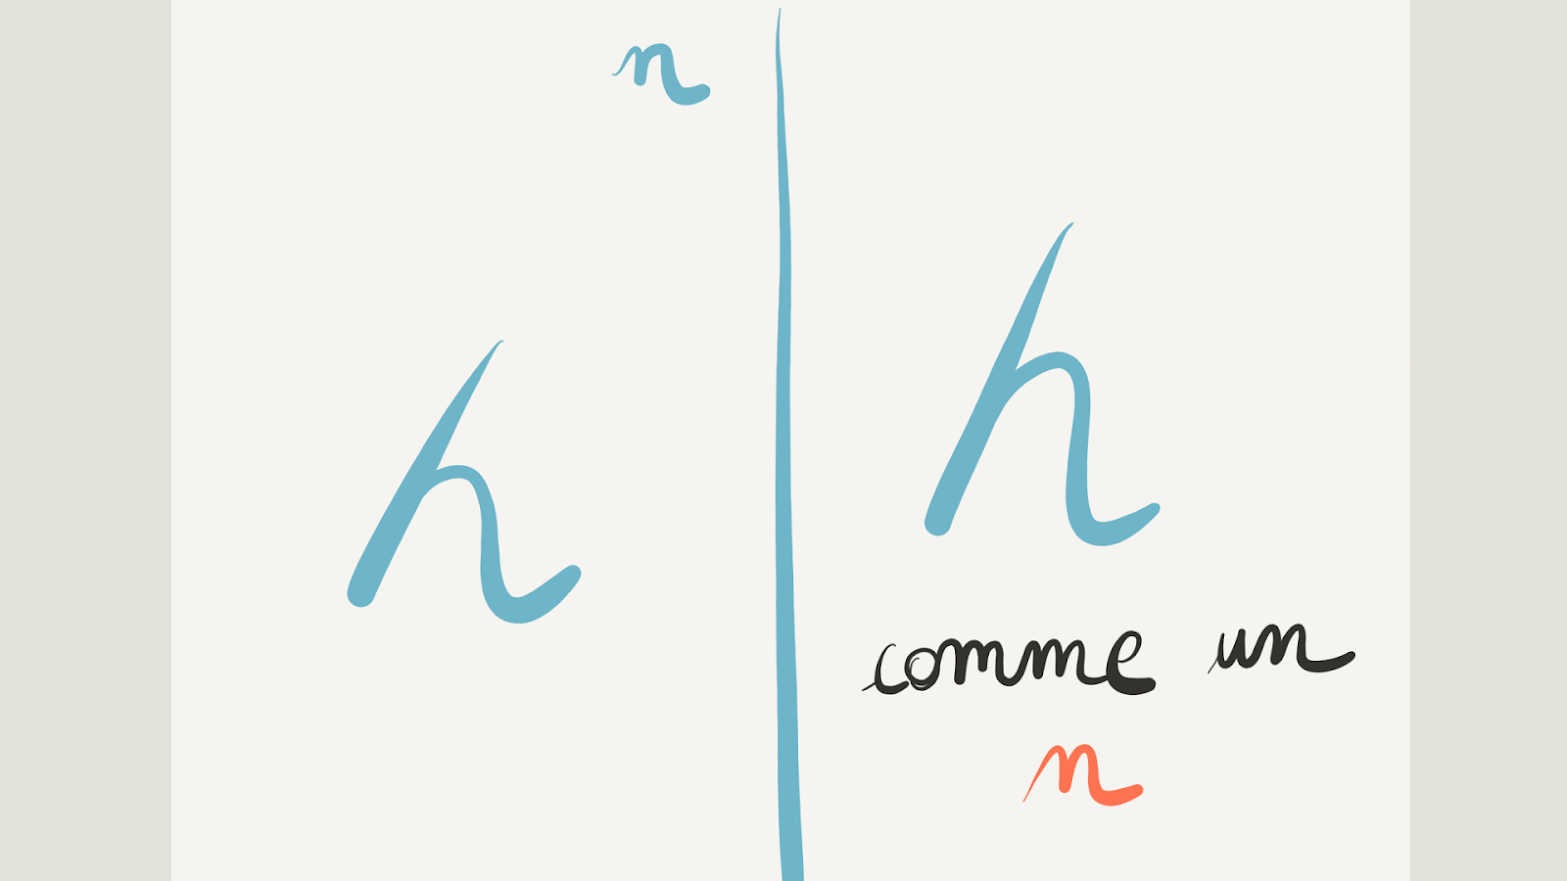 n
h
h
comme un
n